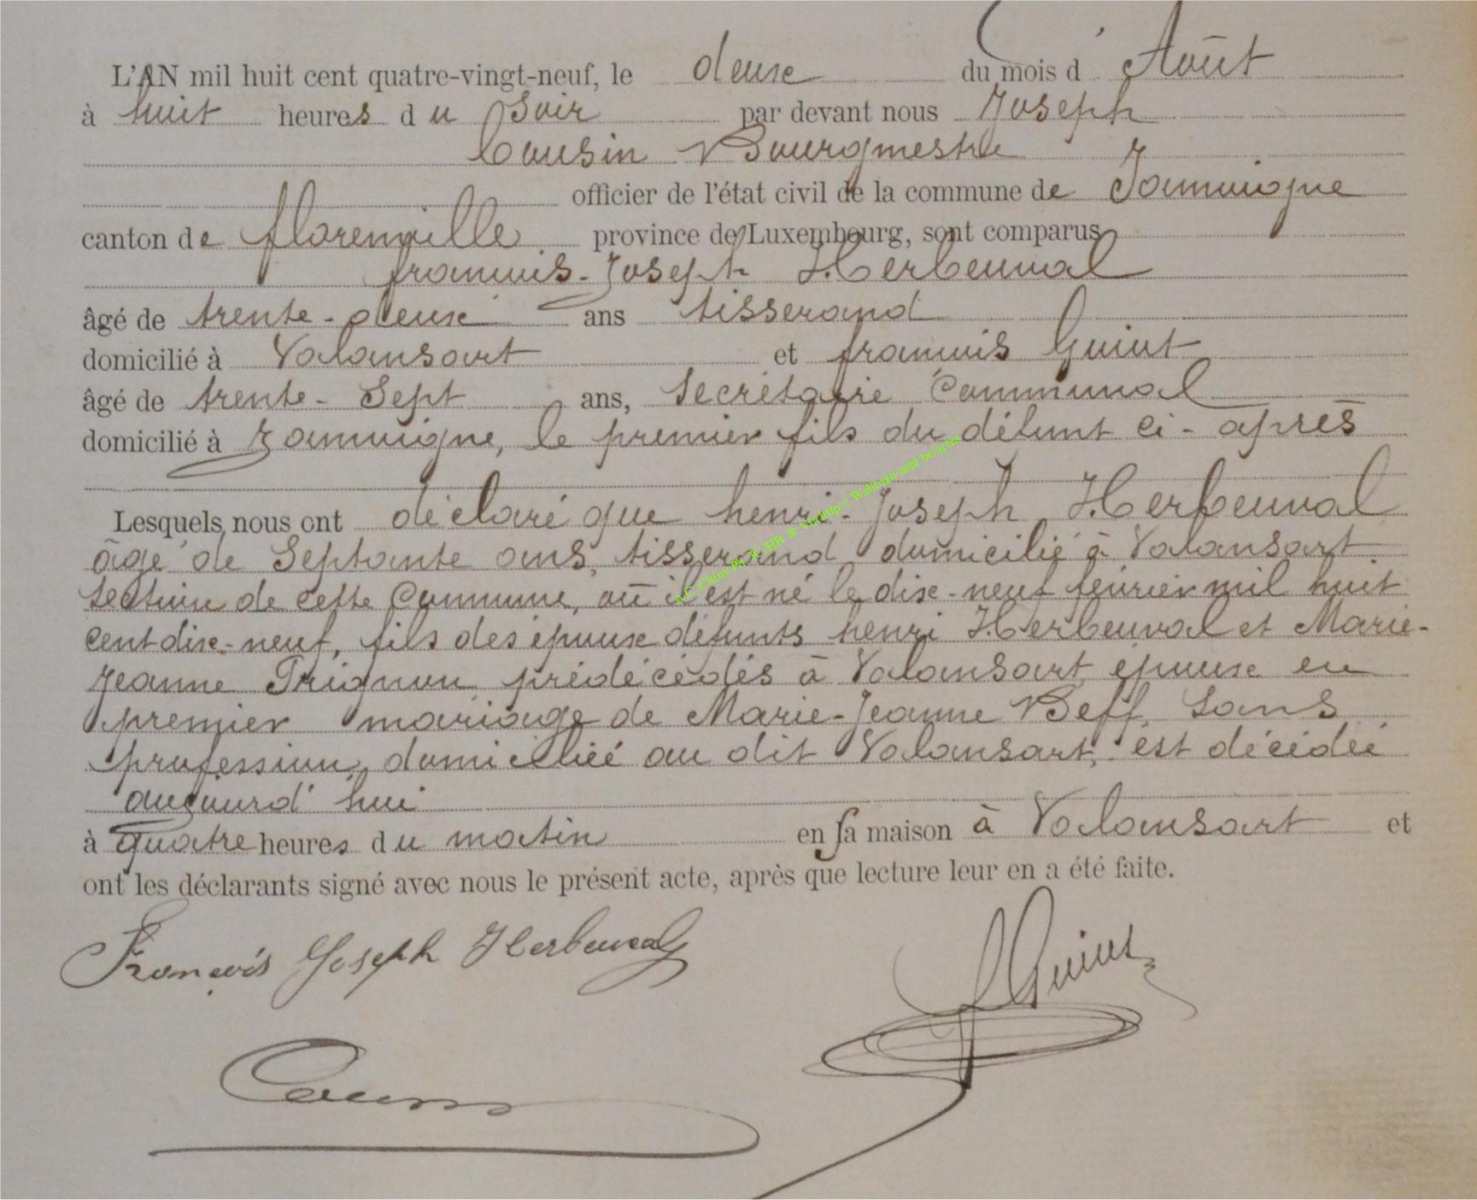 L'AN mil huit cent quatre-vingt-neuf, le deux du mois d' Août
à huit heures du Soir par devant nous Joseph
Cousin Bourgmestre
officier de l'état civil de la commune de Jamoigne
canton de florenville province de Luxembourg, sont comparus
françois-Joseph Herbeuval
âgé de trente-deux ans tisserand
domicilié à Valansart et françois Guiot
âgé de trente-Sept ans, Secrétaire Communal
domicilié à Jamoigne, le premier fils du défunt ci-après
Lesquels nous ont déclaré que henri-Joseph Herbeuval
âgé de Septante ans, tisserand domicilié à Valansart
section de cette Commune, où il est né le dix-neuf février mil huit
cent dix-neuf, fils des époux défunts henri Herbeuval et Marie-
Jeanne Trignon prédécédés à Valansart époux en
premier mariage de Marie-Jeanne Beff, Sans
profession, domiciliée au dit Valansart, est décédé
aujourd'hui
à quatre heures du matin en sa maison à Valansart et
ont les déclarants signé avec nous le présent acte, après que lecture leur en a été faite.
François Joseph Herbeuval
F Guiot
Cousin